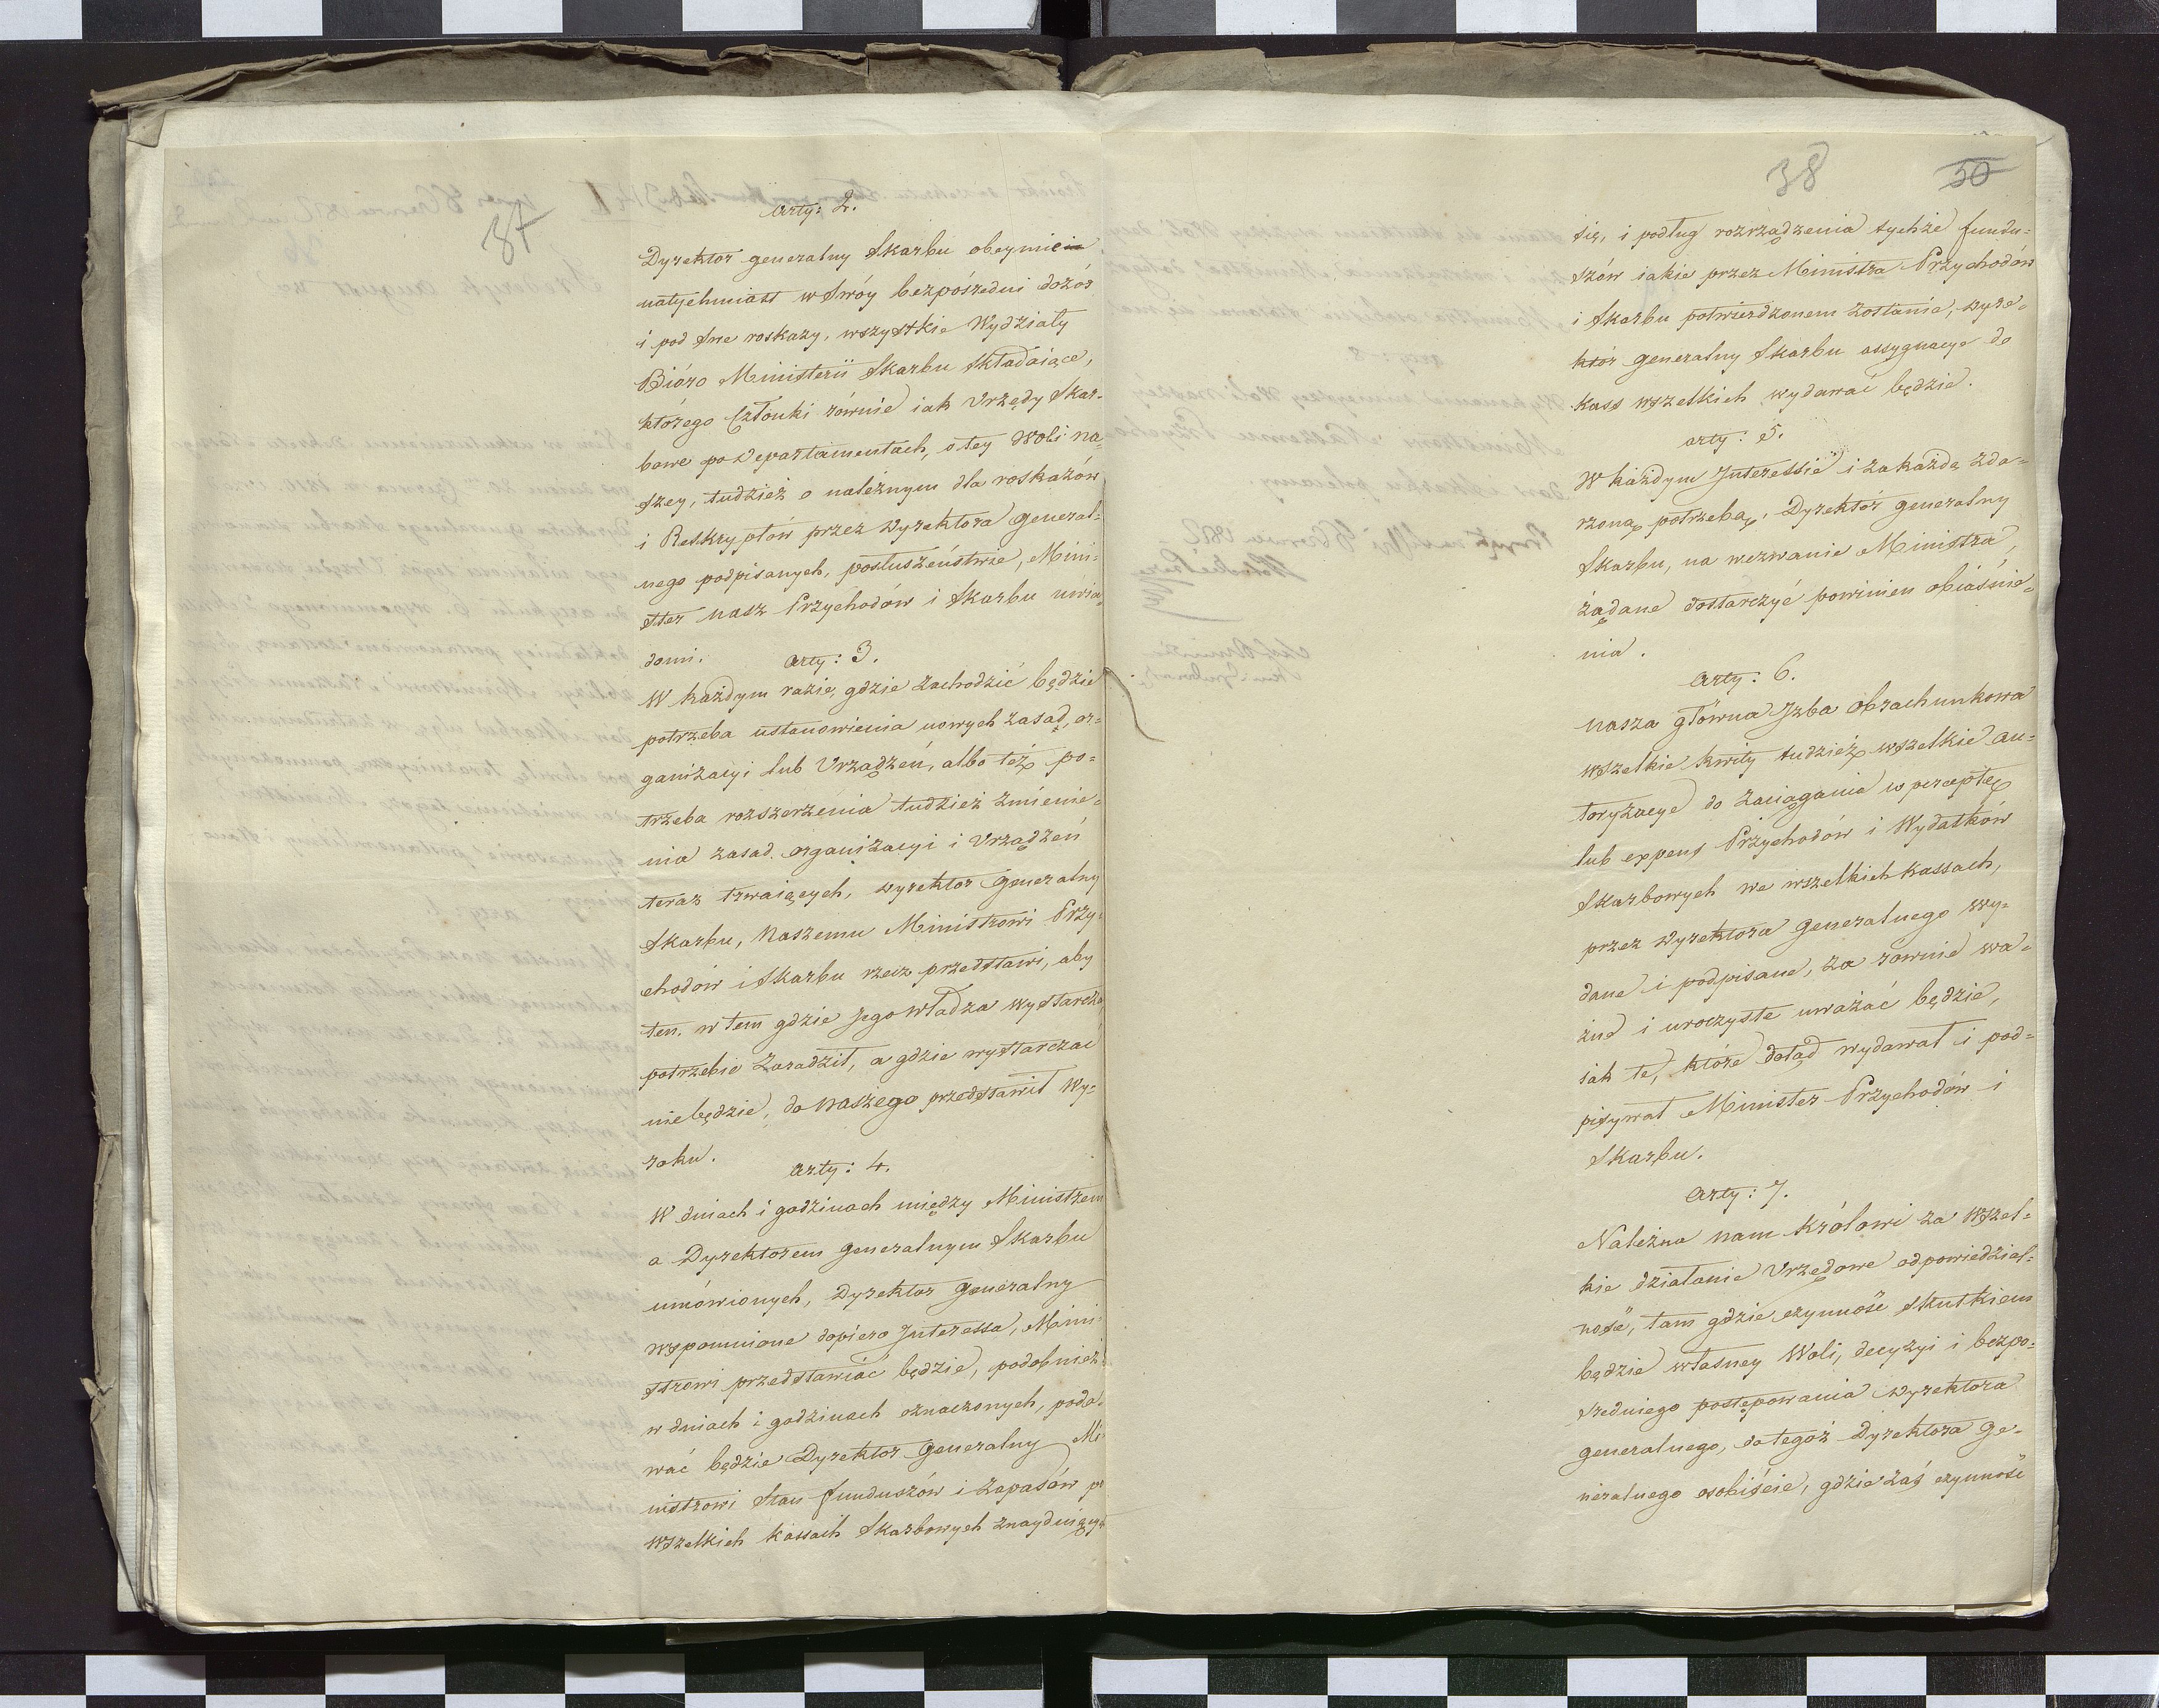 37
Arty: 2.
Dyrektor generalny Skarbu obeymie
natychmiast w Swóy bezpośredni dozór
i pod Swe roskazy, wszystkie Wydziały
Bióro Ministerii Skarbu składaiące,
którego Członki równie iak Urzędy Skar-
bowe po Departamentach, o tey Woli na-
szey, tudzież o należnym dla roskazów
i Reskryptów przez Dyrektora General-
nego podpisanych, posłuszeństwie, Mini-
ster nasz Przychodów i Skarbu uwia-
domi.
Arty: 3.
W każdym razie, gdzie zachodzić będzie
potrzeba ustanowienia nowych zasad, or-
ganizacyi lub Urządzeń, albo też po-
trzeba rozszerzenia tudzież zmienie-
nia zasad, organizacyi i Urządzeń
teraz trwaiących, Dyrektor Generalny
Skarbu, Naszemu Ministrowi Przy-
chodów i Skarbu rzecz przedstawi, aby
ten, w tem gdzie Jego władza wystarcza
potrzebie zaradził, a gdzie wystarczać
niebędzie, do Naszego przedstawił Wy-
roku.
Arty: 4.
W dniach i godzinach między Ministrem
a Dyrektorem Generalnym Skarbu
umówionych, Dyrektor Generalny
wspomnione dopiero Interessa, Mini-
strowi przedstawiać będzie, podobnież
w dniach i godzinach oznaczonych, poda-
wać będzie Dyrektor Generalny Mi-
nistrowi Stan funduszów i zapasów po
wszelkich kassach Skarbowych znayduiących
38 50
się, i podług rozrządzenia tychże fundu-
szów iakie przez Ministra Przychodów
i Skarbu potwierdzonem zostanie, Dyre-
ktor Generalny Skarbu assygnacye do
Kass wszelkich wydawać będzie.
Arty: 5.
W każdym Interessie i za każdą zda-
rzoną potrzebą, Dyrektor Generalny
Skarbu, na wezwanie Ministra,
żądane dostarczyć powinien obiaśnie-
nia.
Arty: 6.
Nasza główna Izba obrachunkowa
wszelkie kwity tudzież wszelkie au-
toryzacye do zaciągania w perceptę
lub expens Przychodów i Wydatków
Skarbowych we wszelkich Kassach,
przez Dyrektora Generalnego wy-
dane i podpisane, za równie wa-
żne i uroczyste uważać będzie,
iak te, które dotąd wydawał i pod-
pisywał Minister Przychodów i
Skarbu.
Arty: 7.
Należna nam Królowi za wszel-
kie działanie Urzędowe odpowiedzial-
ność, tam gdzie czynność skutkiem
będzie własney Woli, decyzyi i bezpo-
średniego postępowania Dyrektora
generalnego, do tegoż Dyrektora Ge-
neralnego osobiście, gdzie zaś czynność